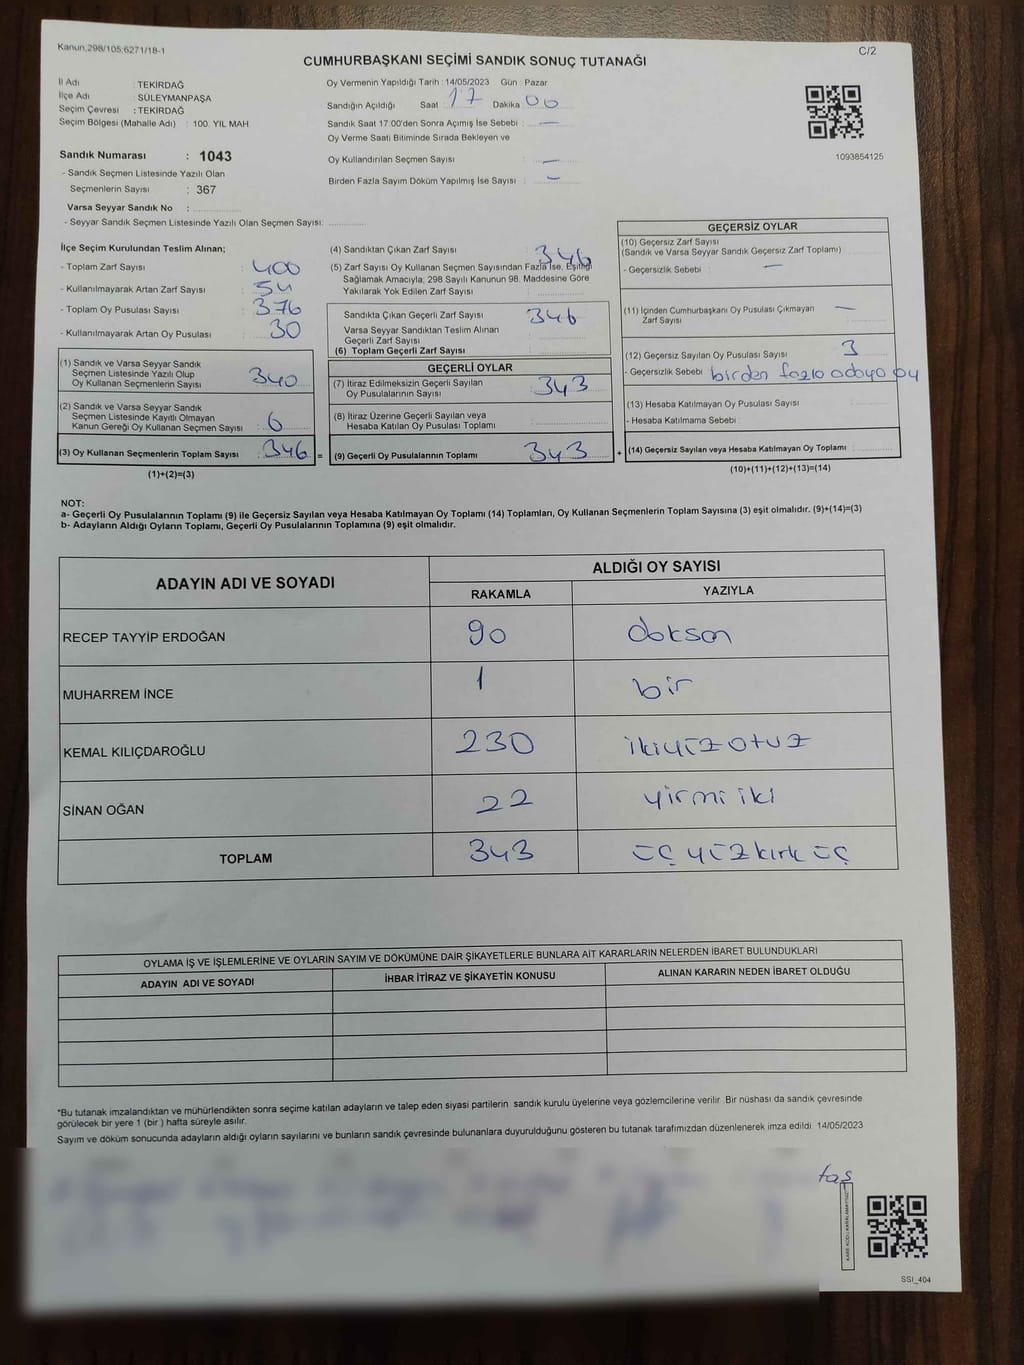 Kanun,298/105,6271/18-1
C/2
CUMHURBAŞKANI SEÇİMİ SANDIK SONUÇ TUTANAĞI
İl Adı : TEKİRDAĞ
İlçe Adı : SÜLEYMANPAŞA
Seçim Çevresi : TEKİRDAĞ
Seçim Bölgesi (Mahalle Adı) : 100. YIL MAH
Sandık Numarası : 1043
- Sandık Seçmen Listesinde Yazılı Olan
Seçmenlerin Sayısı : 367
Varsa Seyyar Sandık No :
- Seyyar Sandık Seçmen Listesinde Yazılı Olan Seçmen Sayısı:
Oy Vermenin Yapıldığı Tarih : 14/05/2023 Gün : Pazar
Sandığın Açıldığı Saat : 17 Dakika : 00
Sandık Saat 17:00'den Sonra Açımış İse Sebebi : —
Oy Verme Saati Bitiminde Sırada Bekleyen ve
Oy Kullandırılan Seçmen Sayısı : —
Birden Fazla Sayım Döküm Yapılmış İse Sayısı : —
1093854125
İlçe Seçim Kurulundan Teslim Alınan;
- Toplam Zarf Sayısı : 400
- Kullanılmayarak Artan Zarf Sayısı : 54
- Toplam Oy Pusulası Sayısı : 376
- Kullanılmayarak Artan Oy Pusulası : 30
(1) Sandık ve Varsa Seyyar Sandık
Seçmen Listesinde Yazılı Olup
Oy Kullanan Seçmenlerin Sayısı : 340
(2) Sandık ve Varsa Seyyar Sandık
Seçmen Listesinde Kayıtlı Olmayan
Kanun Gereği Oy Kullanan Seçmen Sayısı : 6
(3) Oy Kullanan Seçmenlerin Toplam Sayısı : 346 =
(1)+(2)=(3)
(4) Sandıktan Çıkan Zarf Sayısı : 346
(5) Zarf Sayısı Oy Kullanan Seçmen Sayısından Fazla İse, Eşitliği
Sağlamak Amacıyla; 298 Sayılı Kanunun 98. Maddesine Göre
Yakılarak Yok Edilen Zarf Sayısı :
Sandıkta Çıkan Geçerli Zarf Sayısı : 346
Varsa Seyyar Sandıktan Teslim Alınan
Geçerli Zarf Sayısı :
(6) Toplam Geçerli Zarf Sayısı :
GEÇERLİ OYLAR
(7) İtiraz Edilmeksizin Geçerli Sayılan
Oy Pusulalarının Sayısı : 343
(8) İtiraz Üzerine Geçerli Sayılan veya
Hesaba Katılan Oy Pusulası Toplamı :
(9) Geçerli Oy Pusulalarının Toplamı : 343 +
GEÇERSİZ OYLAR
(10) Geçersiz Zarf Sayısı
(Sandık ve Varsa Seyyar Sandık Geçersiz Zarf Toplamı)
- Geçersizlik Sebebi : —
(11) İçinden Cumhurbaşkanı Oy Pusulası Çıkmayan
Zarf Sayısı : —
(12) Geçersiz Sayılan Oy Pusulası Sayısı : 3
- Geçersizlik Sebebi : birden fazla adaya oy
(13) Hesaba Katılmayan Oy Pusulası Sayısı :
- Hesaba Katılmama Sebebi :
(14) Geçersiz Sayılan veya Hesaba Katılmayan Oy Toplamı :
(10)+(11)+(12)+(13)=(14)
NOT:
a- Geçerli Oy Pusulalarının Toplamı (9) ile Geçersiz Sayılan veya Hesaba Katılmayan Oy Toplamı (14) Toplamları, Oy Kullanan Seçmenlerin Toplam Sayısına (3) eşit olmalıdır. (9)+(14)=(3)
b- Adayların Aldığı Oyların Toplamı, Geçerli Oy Pusulalarının Toplamına (9) eşit olmalıdır.
ADAYIN ADI VE SOYADI ALDIĞI OY SAYISI
RAKAMLA YAZIYLA
RECEP TAYYİP ERDOĞAN 90 doksan
MUHARREM İNCE 1 bir
KEMAL KILIÇDAROĞLU 230 ikiyüzotuz
SİNAN OĞAN 22 yirmi iki
TOPLAM 343 üçyüzkırküç
OYLAMA İŞ VE İŞLEMLERİNE VE OYLARIN SAYIM VE DÖKÜMÜNE DAİR ŞİKAYETLERLE BUNLARA AİT KARARLARIN NELERDEN İBARET BULUNDUKLARI
ADAYIN ADI VE SOYADI İHBAR İTİRAZ VE ŞİKAYETİN KONUSU ALINAN KARARIN NEDEN İBARET OLDUĞU
*Bu tutanak imzalandıktan ve mühürlendikten sonra seçime katılan adayların ve talep eden siyasi partilerin sandık kurulu üyelerine veya gözlemcilerine verilir. Bir nüshası da sandık çevresinde
görülecek bir yere 1 (bir ) hafta süreyle asılır.
Sayım ve döküm sonucunda adayların aldığı oyların sayılarını ve bunların sandık çevresinde bulunanlara duyurulduğunu gösteren bu tutanak tarafımızdan düzenlenerek imza edildi 14/05/2023
taş
SSI_404